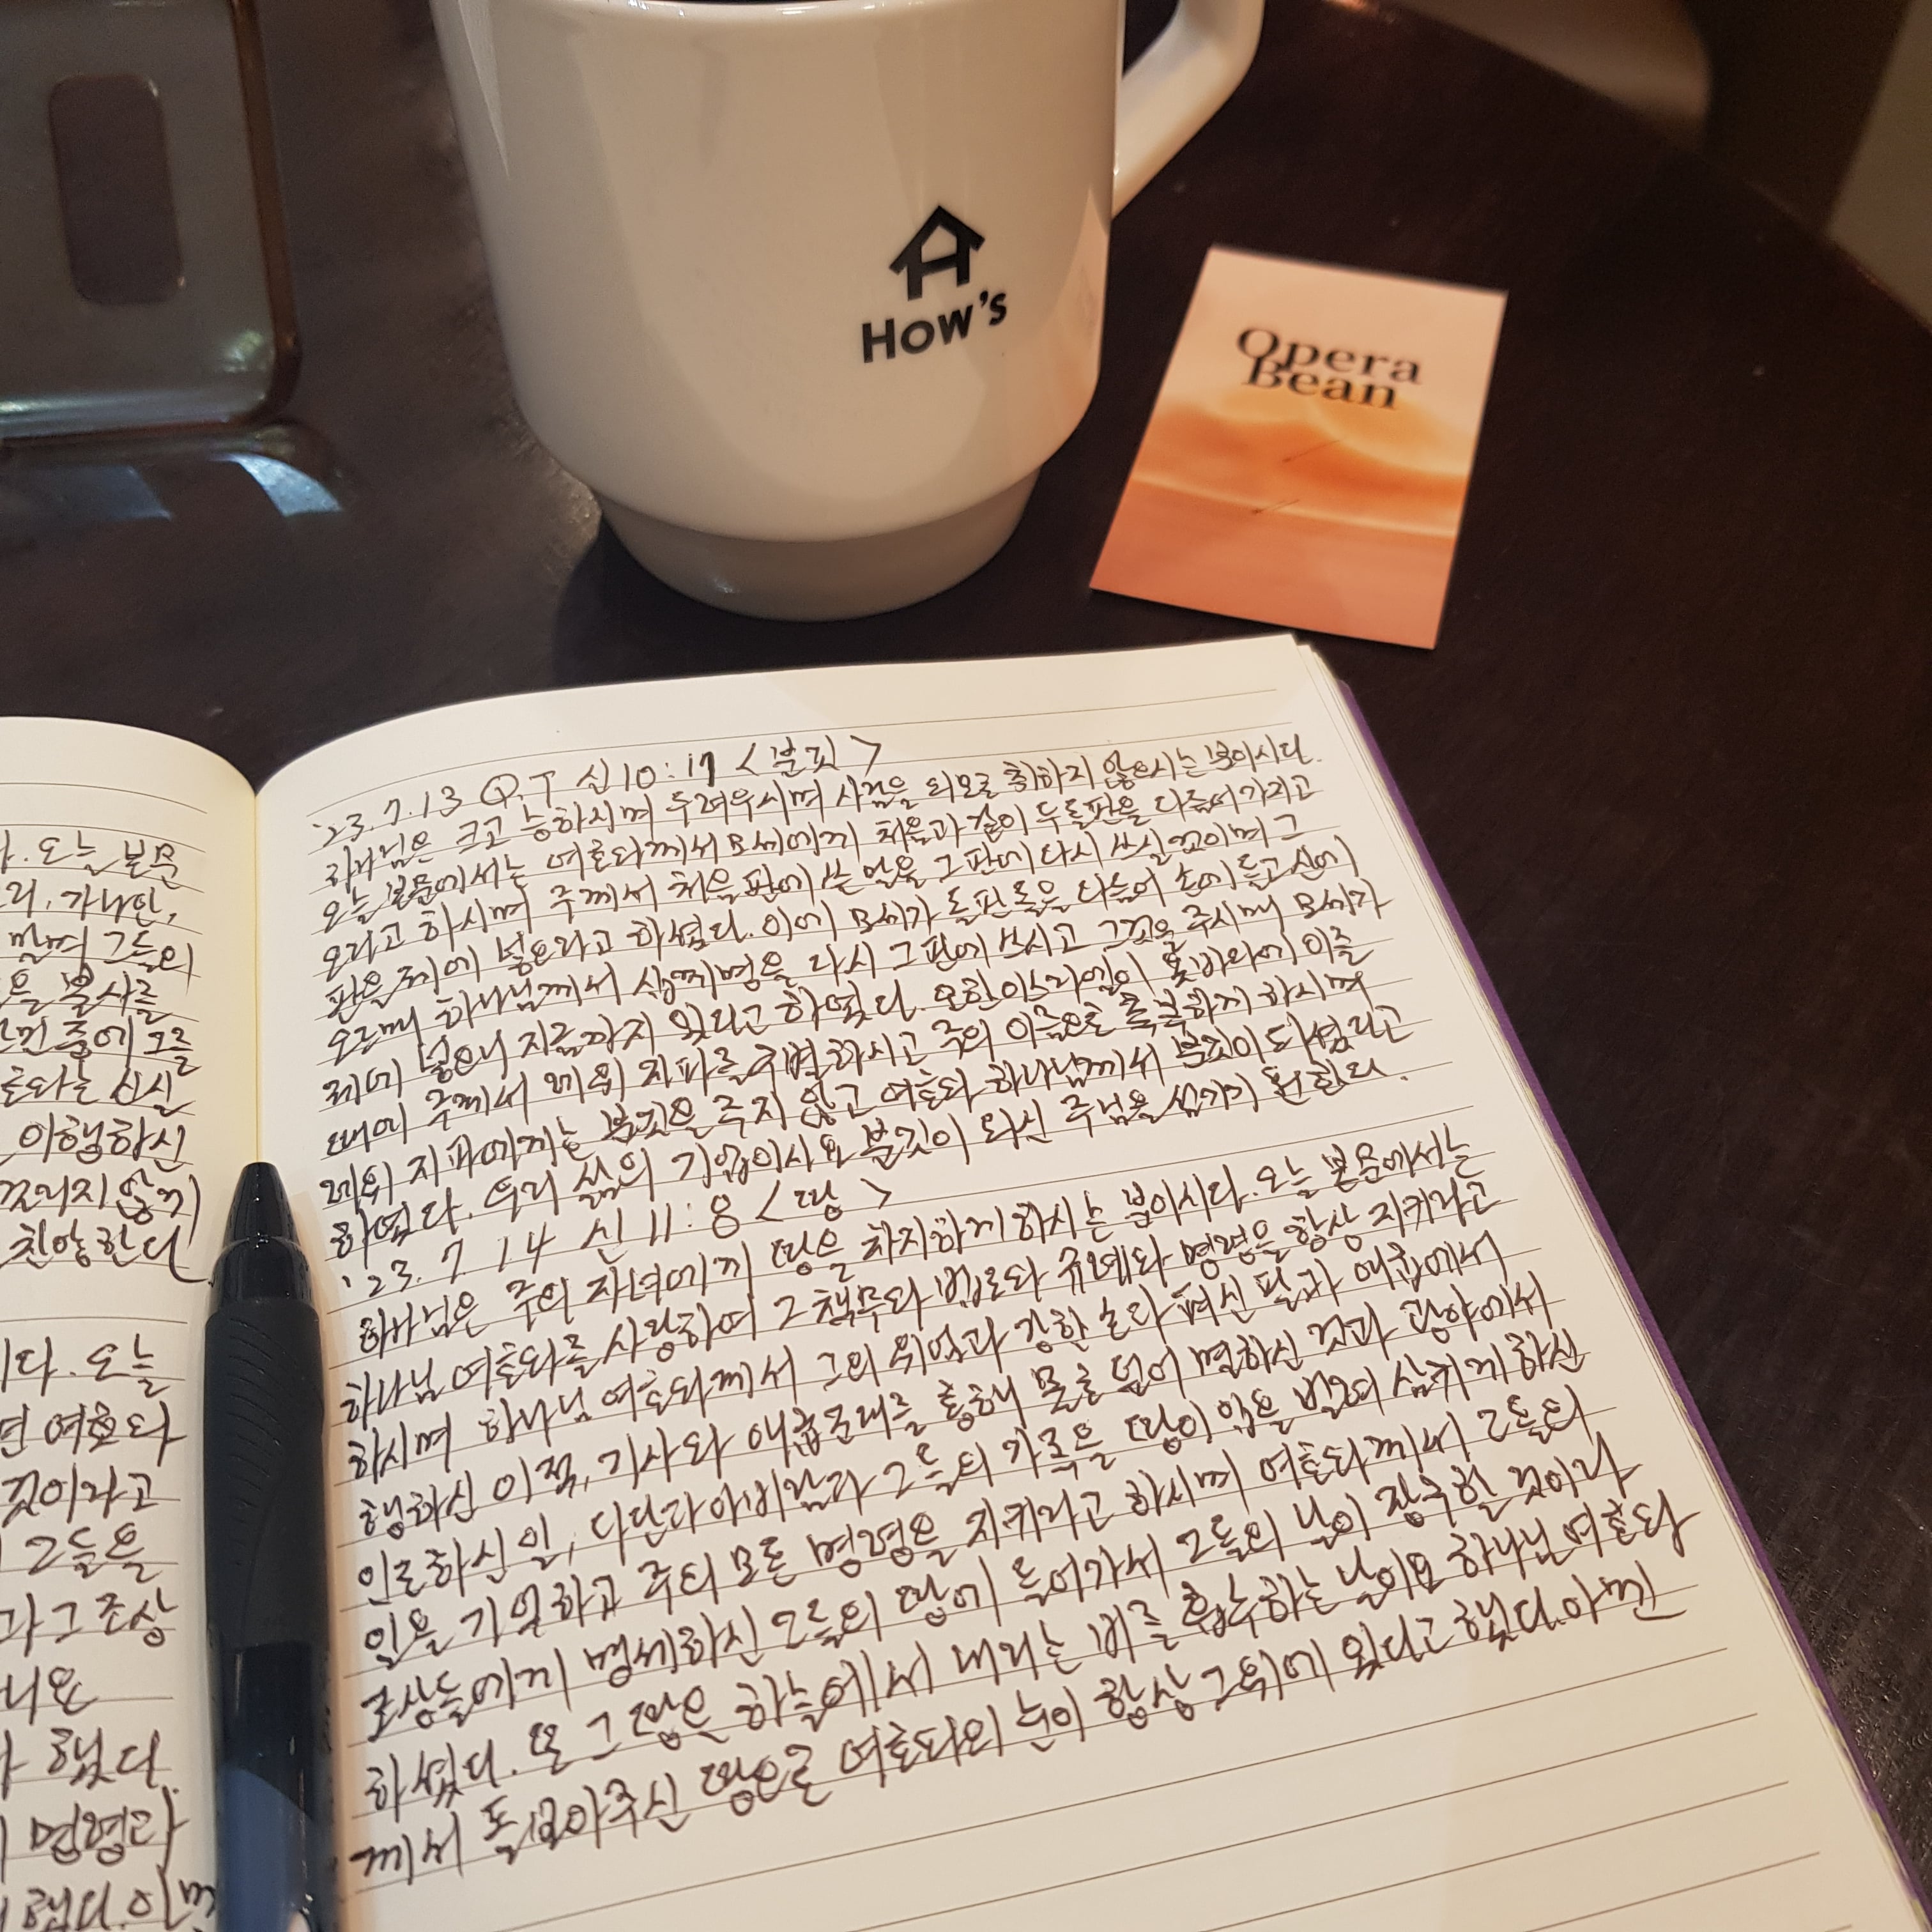 How's
Opera
Bean
'23.7.13 Q.T 신10:17 <분깃>
하나님은 크고 능하시며 두려우시며 사람을 외모로 취하지 않으시는 분이시다.
오늘 본문에서는 여호와께서 모세에게 처음과 같이 두 돌판을 다듬어 가지고
오라고 하시며 주께서 처음 판에 쓴 말을 그 판에 다시 쓰실 것이며 그
판을 궤에 넣으라고 하셨다. 이에 모세가 돌판 둘을 다듬어 손에 들고 산에
오르매 하나님께서 십계명을 다시 그 판에 쓰시고 그것을 주시매 모세가
궤에 넣으니 지금까지 있다고 하였다. 또한 이스라엘이 욧바다에 이를
때에 주께서 레위 지파를 구별하시고 주의 이름으로 축복하게 하시며
레위 지파에게는 분깃을 주지 않고 여호와 하나님께서 분깃이 되셨다고
하였다. 우리 삶의 기업이시요 분깃이 되신 주님을 섬기기 원한다.
'23. 7. 14 신 11:8 <땅>
하나님은 주의 자녀에게 땅을 차지하게 하시는 분이시다. 오늘 본문에서는
하나님 여호와를 사랑하여 그 책무와 법도와 규례와 명령을 항상 지키라고
하시며 하나님 여호와께서 그의 위엄과 강한 손과 펴신 팔과 애굽에서
행하신 이적, 기사와 애굽 군대를 홍해 물로 덮어 멸하신 것과 광야에서
인도하신 일, 다단과 아비람과 그들의 가족을 땅이 입을 벌려 삼키게 하신
일을 기억하고 주의 모든 명령을 지키라고 하시며 여호와께서 그들의
조상들에게 맹세하신 그들의 땅에 들어가서 그들의 날이 장구할 것이라
하셨다. 또 그 땅은 하늘에서 내리는 비를 흡수하는 땅이요 하나님 여호와
께서 돌보아주신 땅으로 여호와의 눈이 항상 그 위에 있다고 했다.
. 오늘 본문
가나안,
그들의
중에
신실
이행하신
않기
찬양한다
다. 오늘
여호와
것이라고
그들을
과 그 조상
했다
명령과
했다.